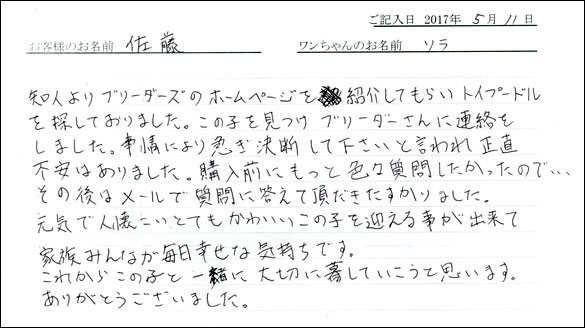 ご記入日 2017年 5月 11日
お客様のお名前 佐藤 ワンちゃんのお名前 ソラ
知人よりブリーダーズのホームページを紹介してもらいトイプードル
を探しておりました。この子を見つけブリーダーさんに連絡を
しました。事情により急ぎ決断して下さいと言われ正直
不安はありました。購入前にもっと色々質問したかったので…
その後はメールで質問に答えて頂だきたすかりました。
元気で人懐こいとてもかわいいこの子を迎える事が出来て
家族みんなが毎日幸せな気持ちです。
これからこの子と一緒に大切に暮していこうと思います。
ありがとうございました。